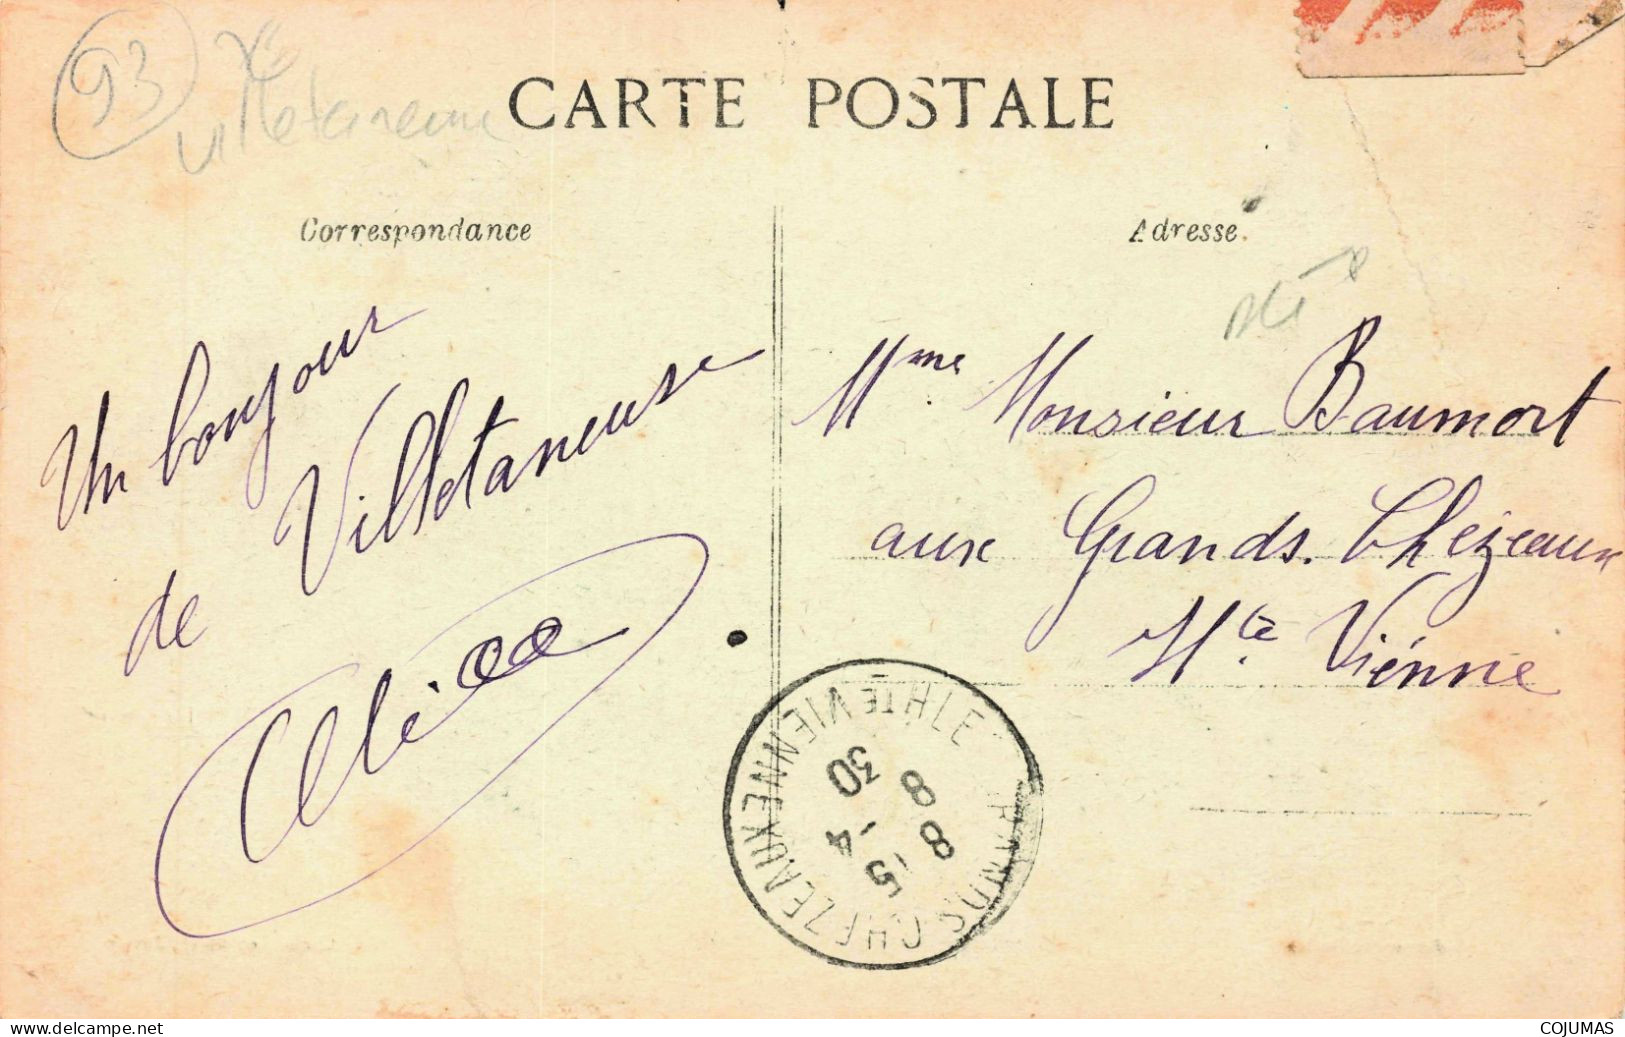 93
Villetaneuse
CARTE POSTALE
Correspondance
Adresse.
Un bonjour
de Villetaneuse
Alice
Mme. Monsieur Baumort
aux Grands. Chézeaux
Hte. Vienne
GRANDS-CHEZEAUX HLE
HTE VIENNE
8 30
15 -4
8
www.delcampe.net
COJUMAS